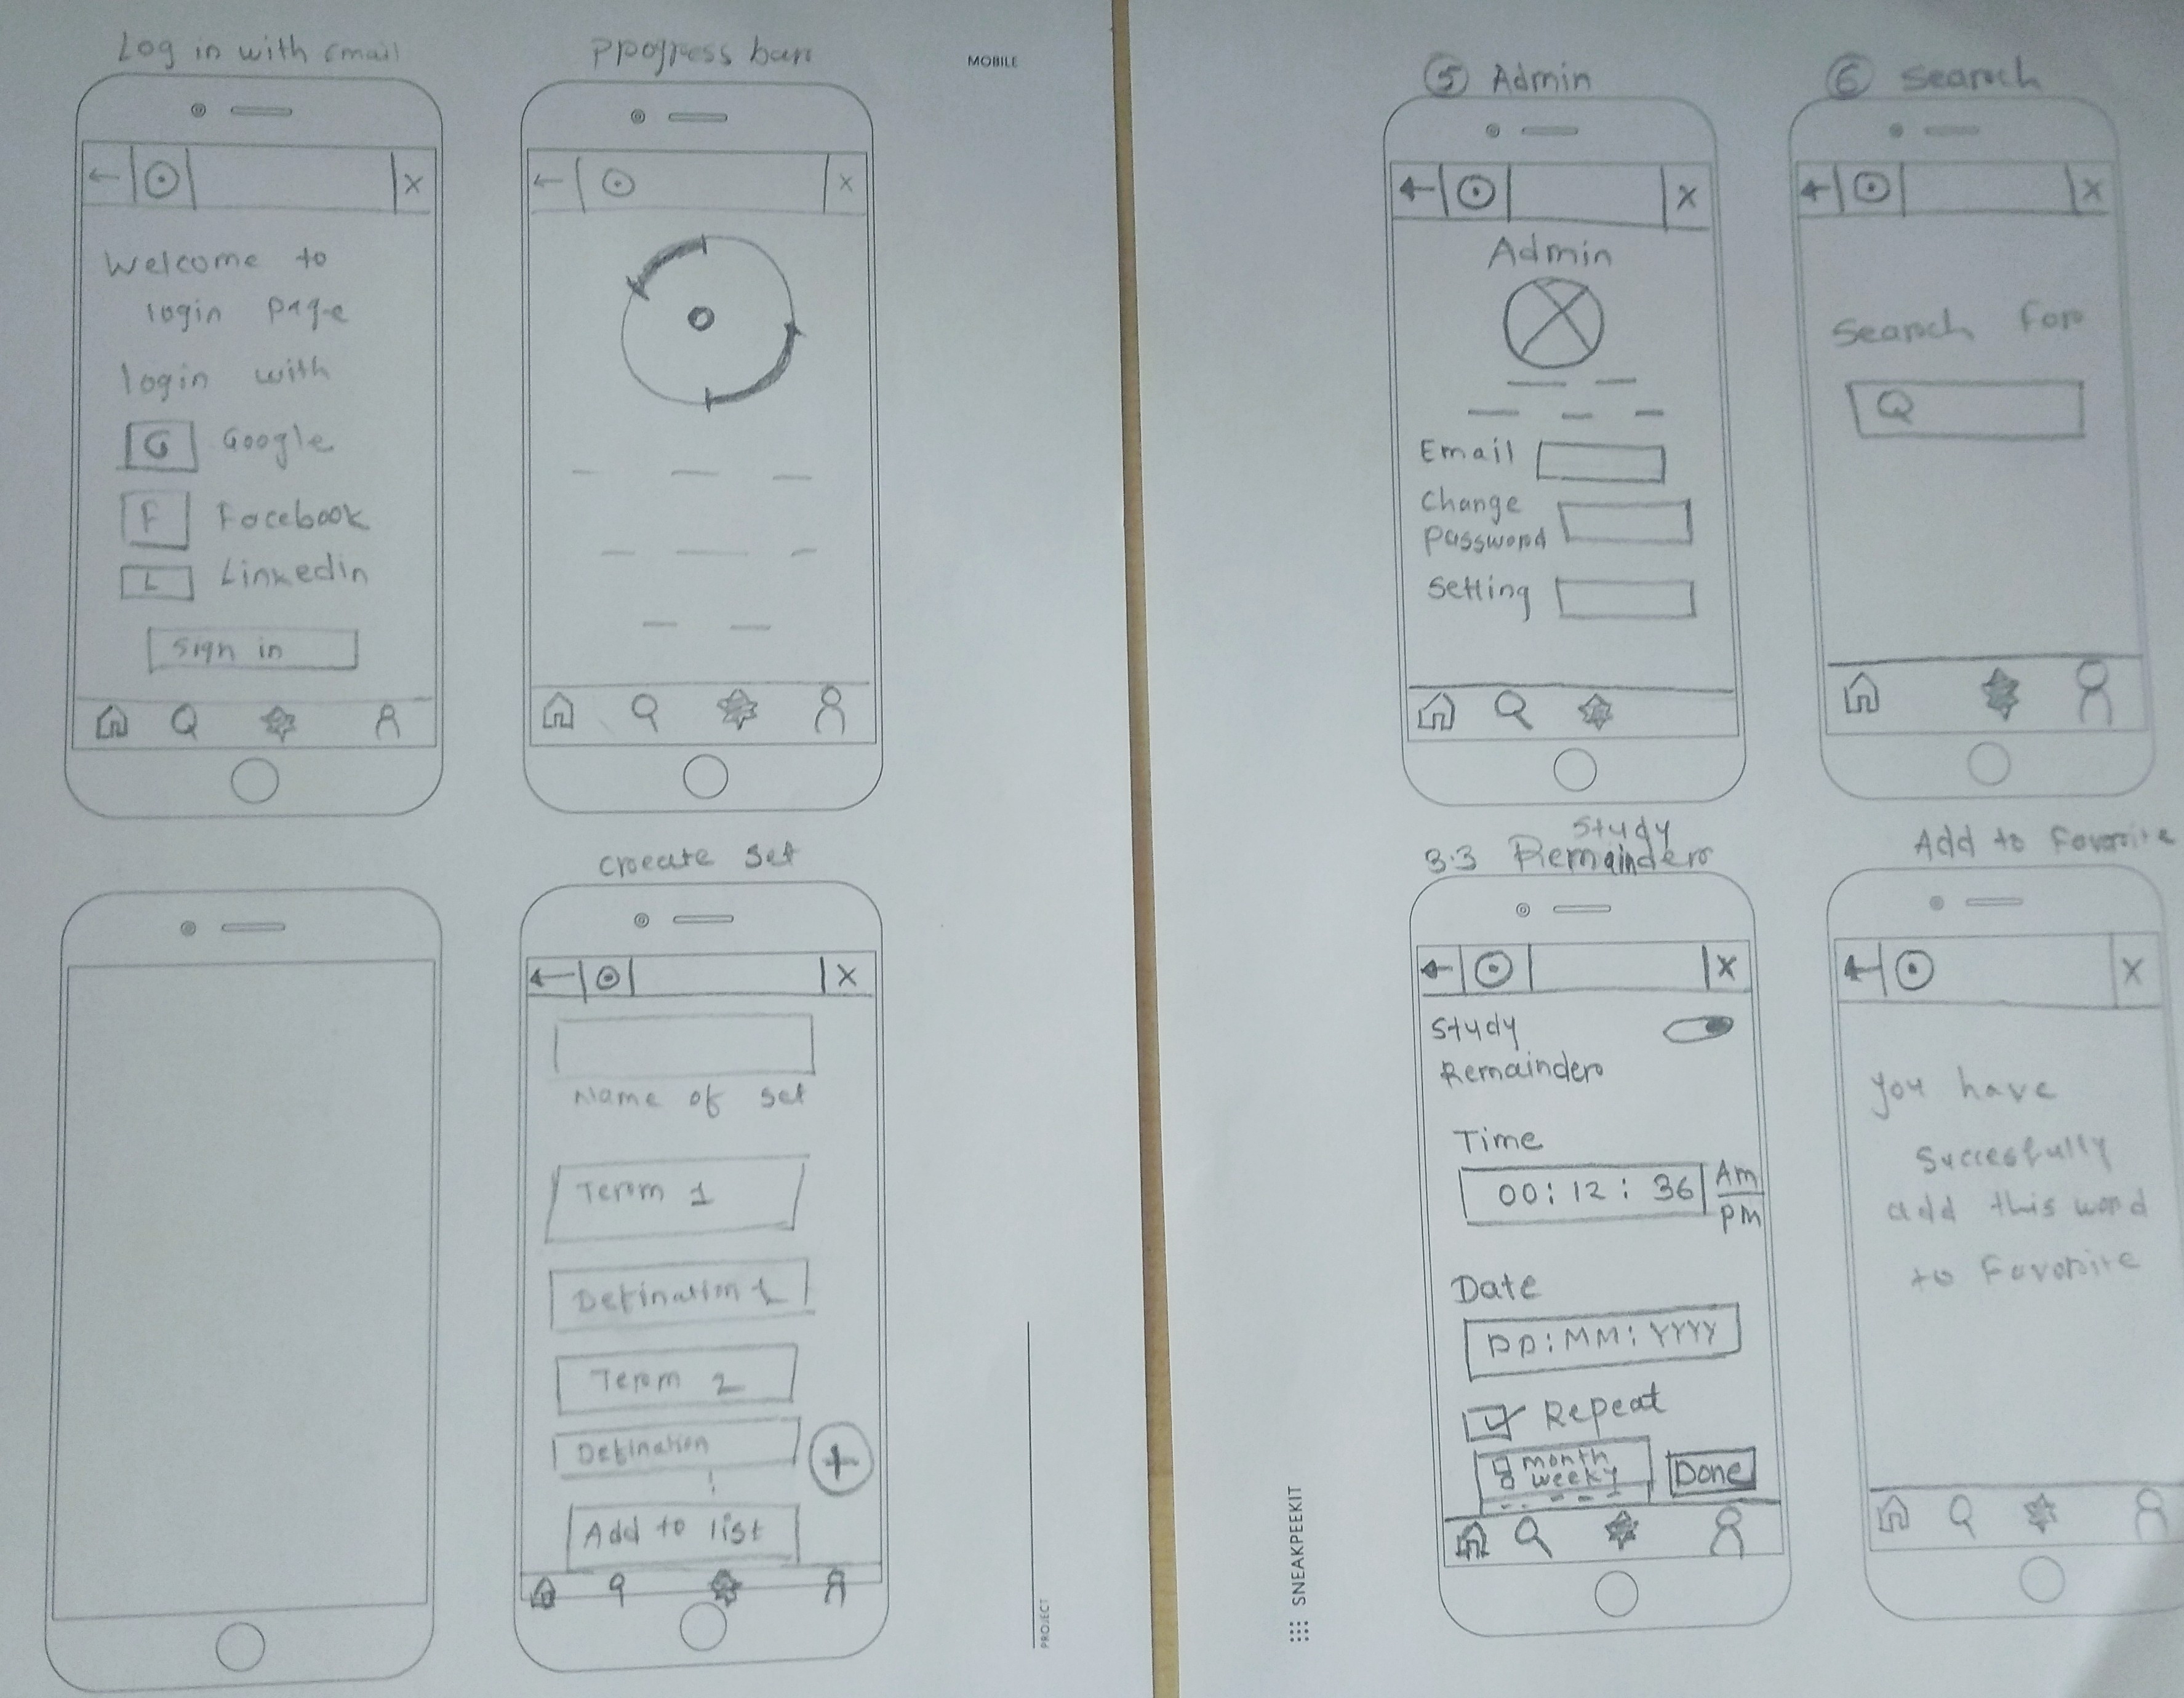 Log in with email
Welcome to
login page
login with
G Google
F Facebook
L Linkedin
Sign in
Progress bar
MOBILE
Create set
Name of set
Term 1
Defination 1
Term 2
Defination
Add to list
PROJECT
5 Admin
Admin
Email
Change
Password
Setting
6 Search
Search For
SNEAKPEEKIT
Study
3.3 Remainder
Study
Remainder
Time
00:12:36 Am
pm
Date
DD:MM:YYYY
Repeat
month
weeky
Done
Add to Favorite
You have
Succesfully
add this word
to Favorite